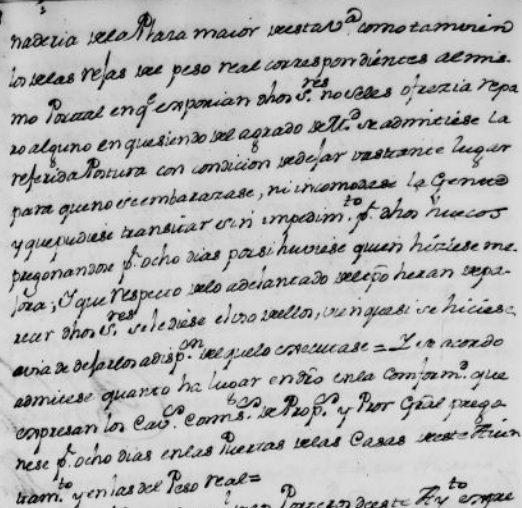 naderia dela Plaza maior de esta V.ᵃ como tamvien
los de las rejas del peso real correspondientes al mis
mo Portal en q.ᵉ exponian dhos S.ʳᵉˢ no seles ofrezia repa
ro alguno en que siendo del agrado de V.ᵈ se admitiese la
referida Postura con condicion de dejar vastante lugar
para que no se embarazase, ni incomodase la Gente
y que pudiese transitar sin impedim.ᵗᵒ p.ʳ dhos huecos
pregonandose p.ʳ ocho dias por si huviese quien hiziese me
jora; Y que respecto de lo adelantado del tpõ heran de pa
recer dhos S.ʳᵉˢ sele diese el uso dellos, sin que si se hiciese
avia de dejarlos a disp.ᵒⁿ del que lo executase = Y se acordo
admitese quanto ha lugar en dro en la Conform.ᵈ que
expresan los Cav.ˢ Comis.ˢ de Prop.ˢ y Pror Gral prego
nese p.ʳ ocho dias en las Puertas de las Casas de este Aiun
tam.ᵗᵒ y en las del Peso real =
Porteros de este Ay.ᵗᵒ